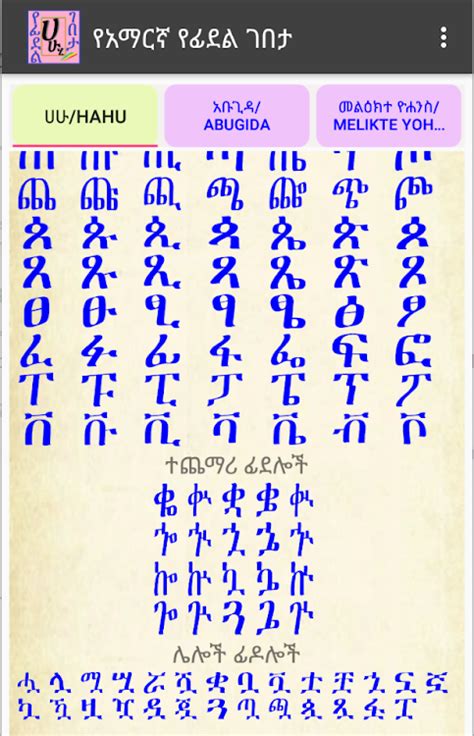 የአማርኛ የፊደል ገበታ
ሀሁ/HAHU
አቡጊዳ/
ABUGIDA
መልዕክተ ዮሐንስ/
MELIKTE YOH...
ጨ ጩ ጪ ጫ ጬ ጭ ጮ
ጰ ጱ ጲ ጳ ጴ ጵ ጶ
ጸ ጹ ጺ ጻ ጼ ጽ ጾ
ፀ ፁ ፂ ፃ ፄ ፅ ፆ
ፈ ፉ ፊ ፋ ፌ ፍ ፎ
ፐ ፑ ፒ ፓ ፔ ፕ ፖ
ቨ ቩ ቪ ቫ ቬ ቭ ቮ
ተጨማሪ ፊደሎች
ቈ ቊ ቋ ቌ ቍ
ኈ ኊ ኋ ኌ ኍ
ኰ ኲ ኳ ኴ ኵ
ጐ ጒ ጓ ጔ ጕ
ሌሎች ፊዶሎች
ሗ ሏ ሟ ሧ ሯ ሿ ቋ ቧ ቯ ቷ ቿ ኋ ኗ ኟ
ኳ ዃ ዟ ዧ ዷ ጇ ጓ ጧ ጯ ጷ ጿ ፏ ፗ